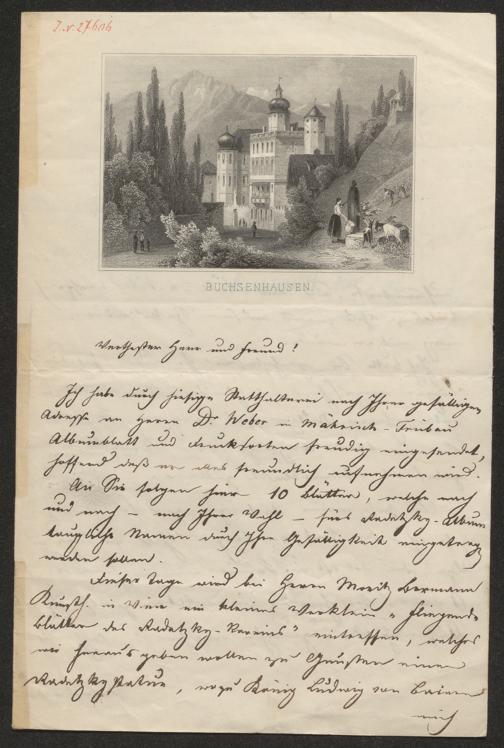 J. N. 27606
BUCHSENHAUSEN
Verehrtester Herr und Freund!
Ich habe durch hiesige Statthalterei nach Ihrer gefälligen
Adresse an Herrn Dr. Weber in Mährisch-Trübau
Albumblatt und Drucksorten freudig eingesendet,
hoffend daß er alles freundlich aufnehmen wird.
An Sie folgen hier 10 Blätter, welche nach
und nach – nach Ihrer Wahl – fürs Radetzky-Album
taugliche Namen durch Ihre Gefälligkeit eingetragen
werden sollen.
Dieser Tage wird bei Herrn Moritz Bermann
Kunsth. in Wien ein kleines Werklein "Fliegende
Blätter des Radetzky-Vereins" eintreffen, welches
wir herausgeben wollen zu Gunsten einer
Radetzky Statue, wozu König Ludwig von Baiern
mich